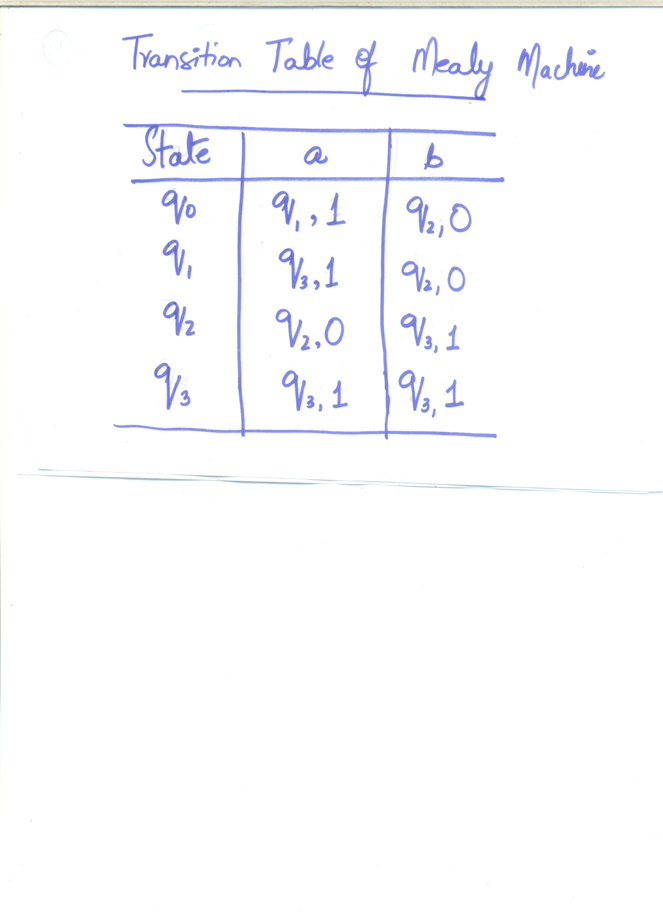 Transition Table of Mealy Machine
State a b
q0 q1, 1 q2, 0
q1 q3, 1 q2, 0
q2 q2, 0 q3, 1
q3 q3, 1 q3, 1